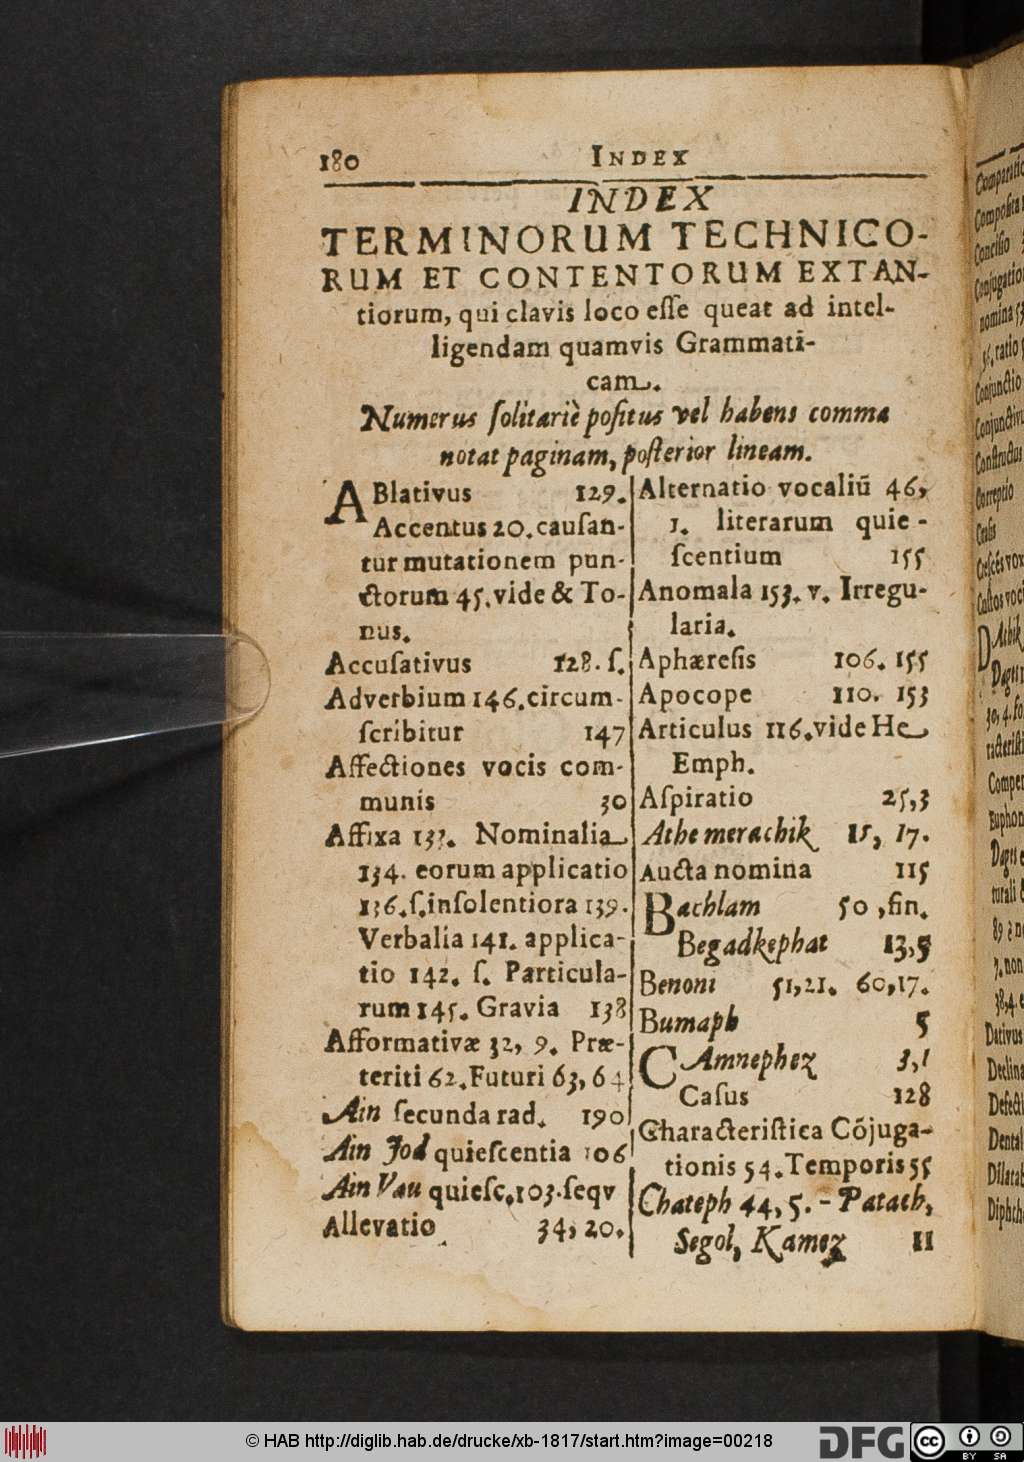 180 INDEX
INDEX
TERMINORUM TECHNICO-
RUM ET CONTENTORUM EXTAN-
tiorum, qui clavis loco eſſe queat ad intel-
ligendam quamvis Grammati-
cam.
Numerus ſolitariè poſitus vel habens comma
notat paginam, poſterior lineam.
ABlativus 129.
Accentus 20. cauſan-
tur mutationem pun-
ctorum 45. vide & To-
nus.
Accuſativus 128. ſ.
Adverbium 146. circum-
ſcribitur 147
Affectiones vocis com-
munis 30
Affixa 133. Nominalia
134. eorum applicatio
136. ſ. inſolentiora 139.
Verbalia 141. applica-
tio 142. ſ. Particula-
rum 145. Gravia 138
Afformativæ 32, 9. Præ-
teriti 62. Futuri 63, 64
Ain ſecunda rad. 190
Ain Jod quieſcentia 106
Ain Vau quieſc. 103. ſeqv
Allevatio 34, 20.
Alternatio vocaliū 46,
1. literarum quie-
ſcentium 155
Anomala 153. v. Irregu-
laria.
Aphæreſis 106. 155
Apocope 110. 153
Articulus 116. vide He
Emph.
Aſpiratio 25,3
Athe merachik 15, 17.
Aucta nomina 115
Bachlam 50, fin.
Begadkephat 13,5
Benoni 51,21. 60,17.
Bumaph 5
CAmnephez 3,1
Caſus 128
Characteriſtica Cõjuga-
tionis 54. Temporis 55
Chateph 44, 5. - Patach,
Segol, Kamez 11
Compoſita
Conciſio
nomina 53
Conjunctio
Correptio
Craſis
Euphon
Dativus
Declina
Defecti
Dental
Dilatab
Diphth
© HAB http://diglib.hab.de/drucke/xb-1817/start.htm?image=00218
DFG
cc
BY SA